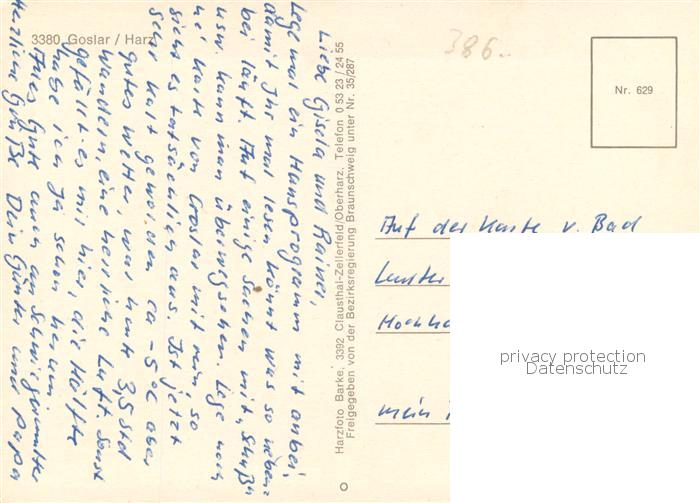 3380 Goslar / Harz
386.-
Nr. 629
Liebe Gisela und Rainer,
Lege mal ein Hausprogramm mit anbei,
damit Ihr mal lesen könnt was so neben-
bei läuft. Auf einige Sachen mit,
usw. kann man übersehen. Lege noch
ne Karte von Goslar mit rein so
sieht es tatsächlich aus. Ist jetzt
sehr kalt geworden ca -5°C aber
gutes Wetter, war heute 3,5 Std
Wandern, eine herrliche Luft. Sonst
gefällt es mir hier, die Hälfte
habe ich ja schon herum
Alles Gute auch an Schwiegermutter
Herzliche Grüße Dein Günter und Papa
Harzfoto Barke, 3392 Clausthal-Zellerfeld/Oberharz, Telefon 0 53 23 / 24 55
Freigegeben von der Bezirksregierung Braunschweig unter Nr. 35/287
Auf der Karte v. Bad
mein
privacy protection
Datenschutz